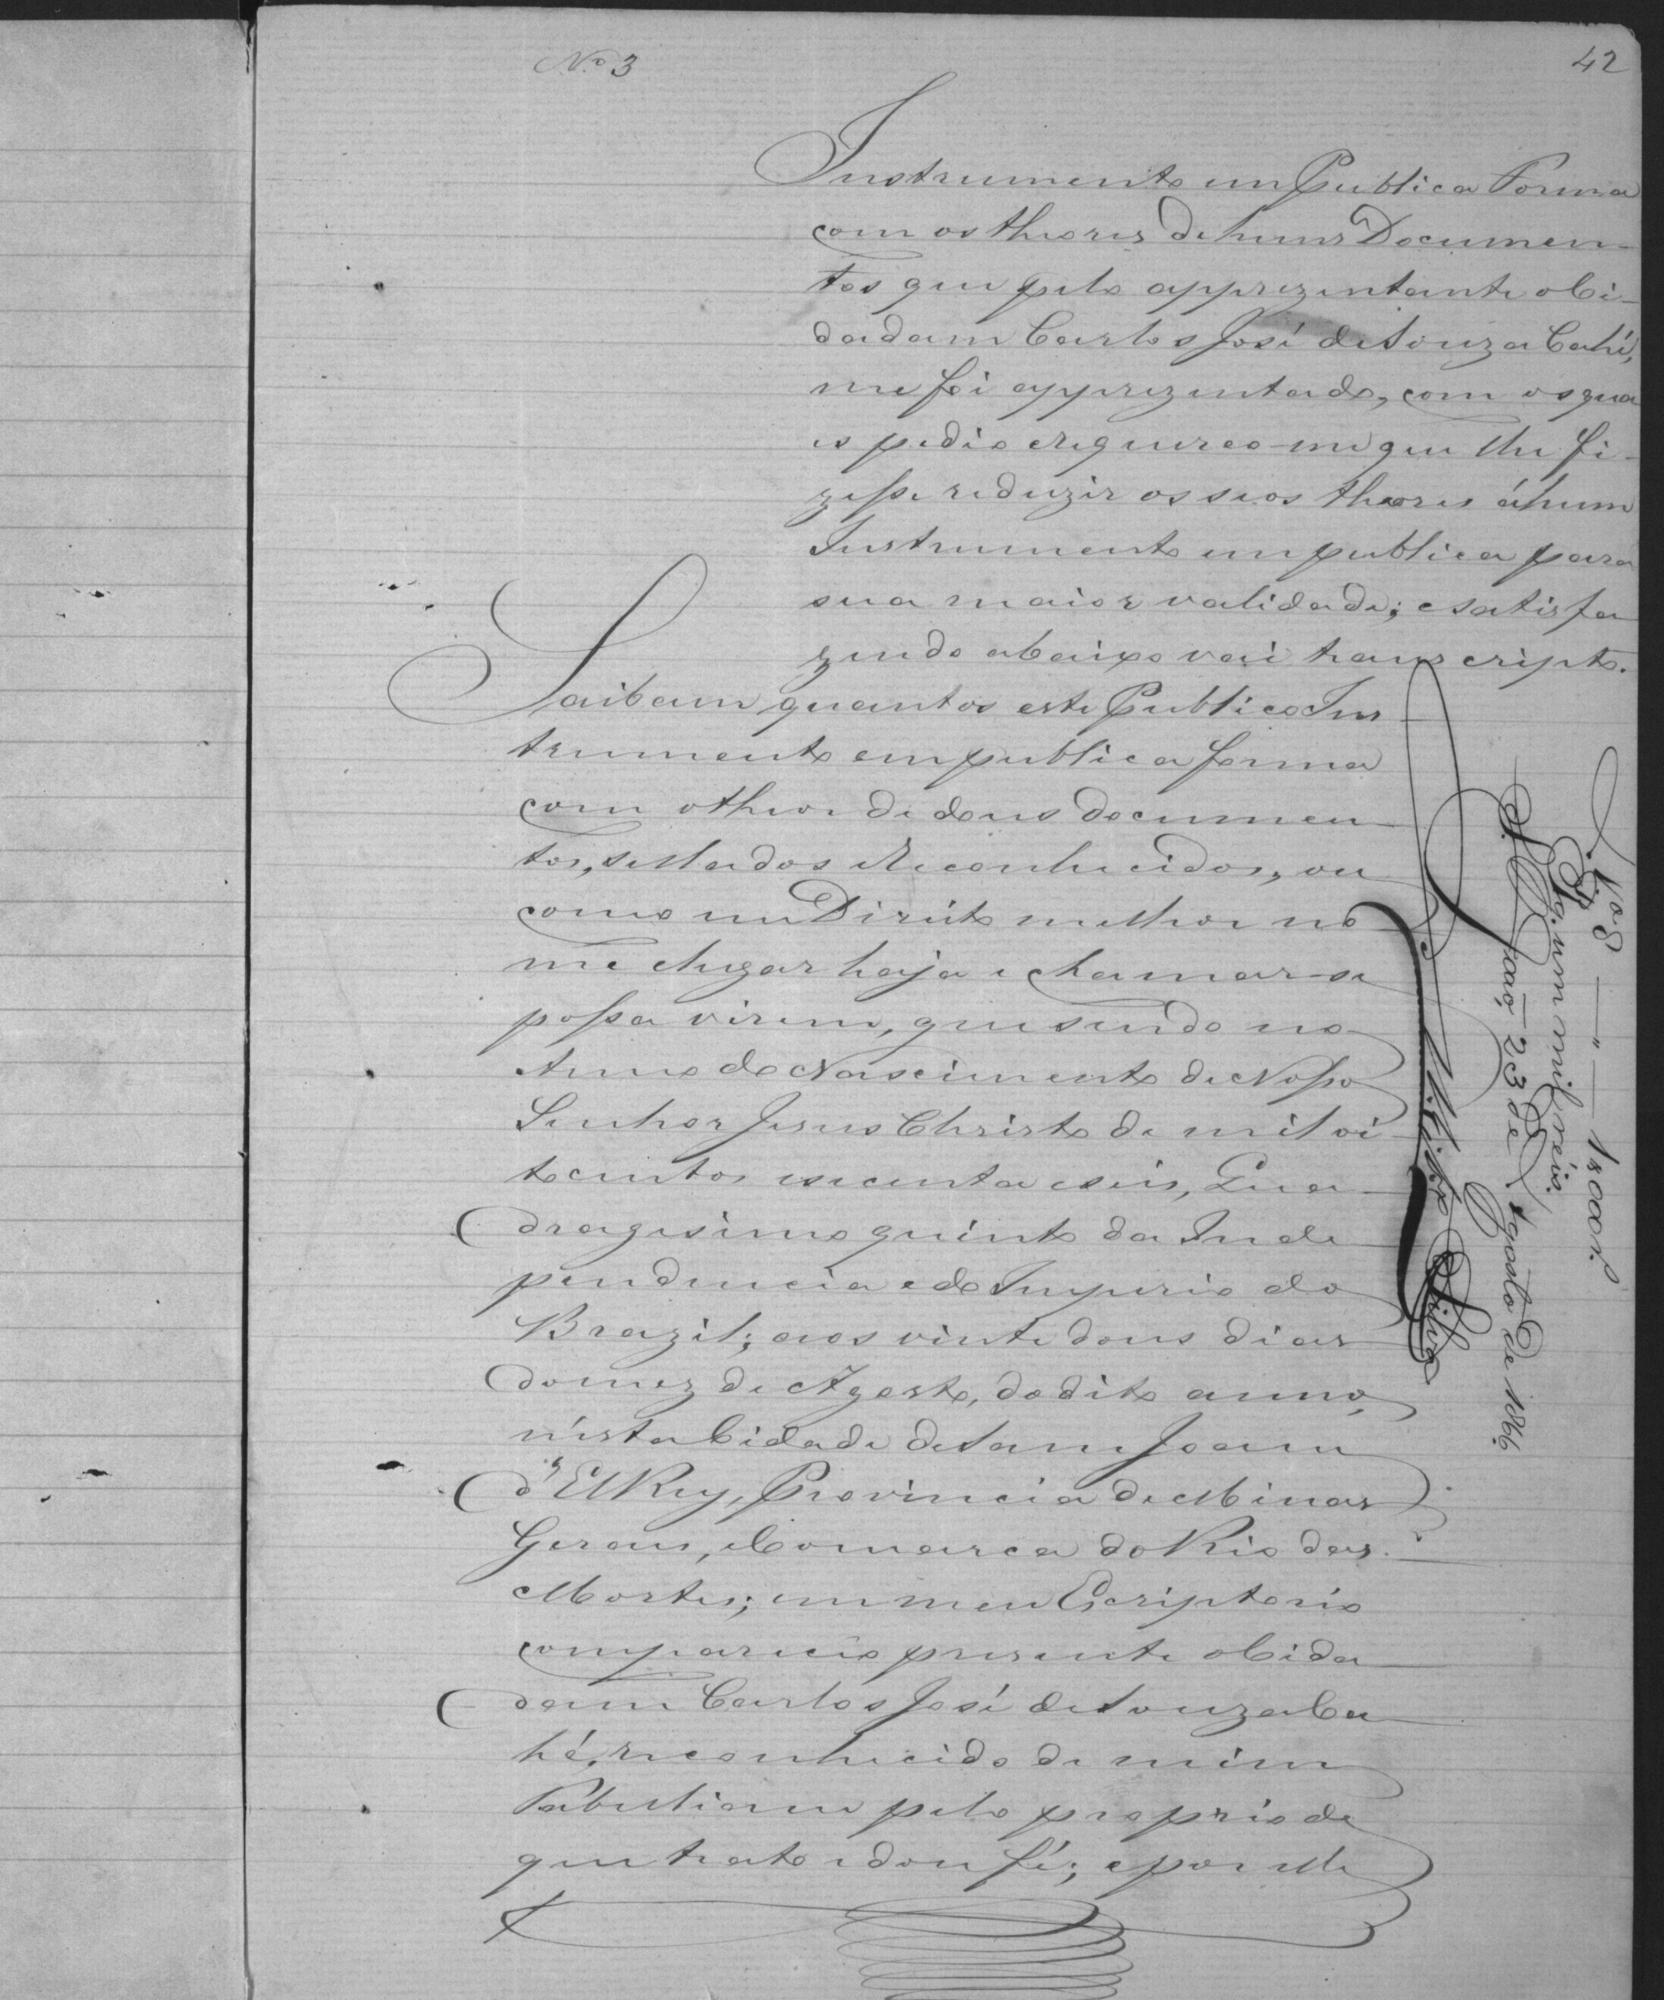 Nº 3
42
Instrumento em Publica Forma
com os theores de huns Documen-
tos que pelo apprezentante o Ci-
dadam Carlos José de Souza Cahé,
me foi apprezentado, com os qua
es pedio e requereo-me que lhe fi-
zesse reduzir os seos theores á hum
Instrumento em publica para
sua maior validade; e satisfa
zendo abaixo vai transcripto.
Saibam quantos este Publico Ins
trumento em publica forma
com o theor de dous documen
tos, sellados e Reconhecidos, ou
como em Direito melhor no
me e lugar haja e chamar-se
possa virem, que sendo no
Anno do Nascimento de Nosso
Senhor Jesus Christo de mil oi
tocentos e secenta e seis, Qua
dragesimo quinto da Inde
pendencia e do Imperio do
Brazil; aos vinte dous dias
do mez de Agosto, do dito anno,
n'esta Cidade de Sam Joam
d'El Rey, Provincia de Minas
Geraes, e Comarca do Rio das
Mortes; em meu Escriptorio
compareceo presente o Cida
dam Carlos José de Souza Ca
hé, reconhecido de mim
Tabelliam pelo proprio de
que trato e dou fé; e por elle
N. 108 — " — 1$000 r.
Pg. um mil reis.
S. João 23 de Agosto de 1866
Silva